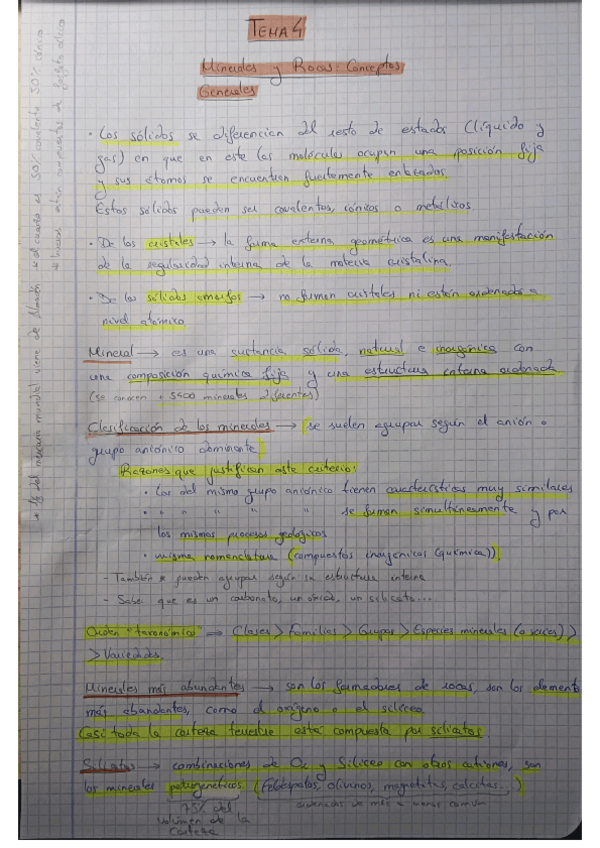 TEMA 4
Minerales y Rocas: Conceptos
Generales
· Los sólidos se diferencian del resto de estados (líquido y
gas) en que en este las moléculas ocupan una posición fija
y sus átomos se encuentran fuertemente enlazados.
Estos sólidos pueden ser covalentes, iónicos o metálicos.
· De los cristales → la forma externa geométrica es una manifestación
de la regularidad interna de la materia cristalina.
· De los sólidos amorfos → no forman cristales ni están ordenados a
nivel atómico.
Mineral → es una sustancia sólida, natural e inorgánica con
una composición química fija y una estructura interna ordenada
(se conocen 5400 minerales diferentes)
Clasificación de los minerales → (se suelen agrupar según el anión o
grupo aniónico dominante)
Razones que justifican este criterio:
· Los del mismo grupo aniónico tienen características muy similares
· " " " " " se forman simultáneamente y por
los mismos procesos geológicos
· misma nomenclatura (compuestos inorgánicos (química))
- También se pueden agrupar según su estructura interna
- Saber que es un carbonato, un óxido, un silicato...
Orden "taxonómico" ⇒ Clases > Familias > Grupos > Especies minerales (o series) >
> Variedades.
Minerales más abundantes → son los formadores de rocas, son los elementos
más abundantes, como el oxígeno o el silíceo.
Casi toda la corteza terrestre está compuesta por silicatos.
Silicatos → combinaciones de O₂ y Silíceo con otros cationes, son
los minerales petrogenéticos. (Feldespatos, olivinos, magnetitas, calcitas...)
75% del
volumen de la
corteza
ordenadas de más a menos común
* 1/3 del mercurio mundial viene de Almadén * el cuarzo es 50% covalente 50% iónico